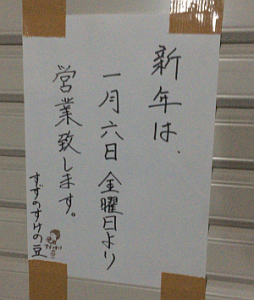 新年は、
一月六日金曜日より
営業致します。
すずのすけの豆